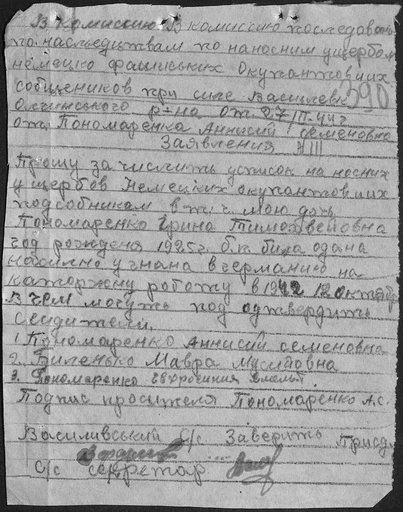 В комисию В комисию последовань
по наследствам по наносним ущербом
немецко фашиських Окупантов и их
сообщеников при селе Василевк
390
Олшанського р-на от 27/III-44 г
от Пономаренка Аннисий семеновна
Заявления
Прошу зачислить усписок на носних
ущербов Немецких окупантов и их
подсобником в т.ч. мою доч
Пономаренко Ірина Тимофвейовна
год рождена 1925 г. бы била одана
насилно угнана в германию на
каторжну роботу в 1942 12 октябр
В чем могуть под одтвердить
свидители.
1 Пономаренко Аннисий семеновна
2. Биленько Мавра Мусиовна
3. Пономаренко
Подпис просителя Пономаренко А.С.
Василивський С/с Заверить
С/с секретар